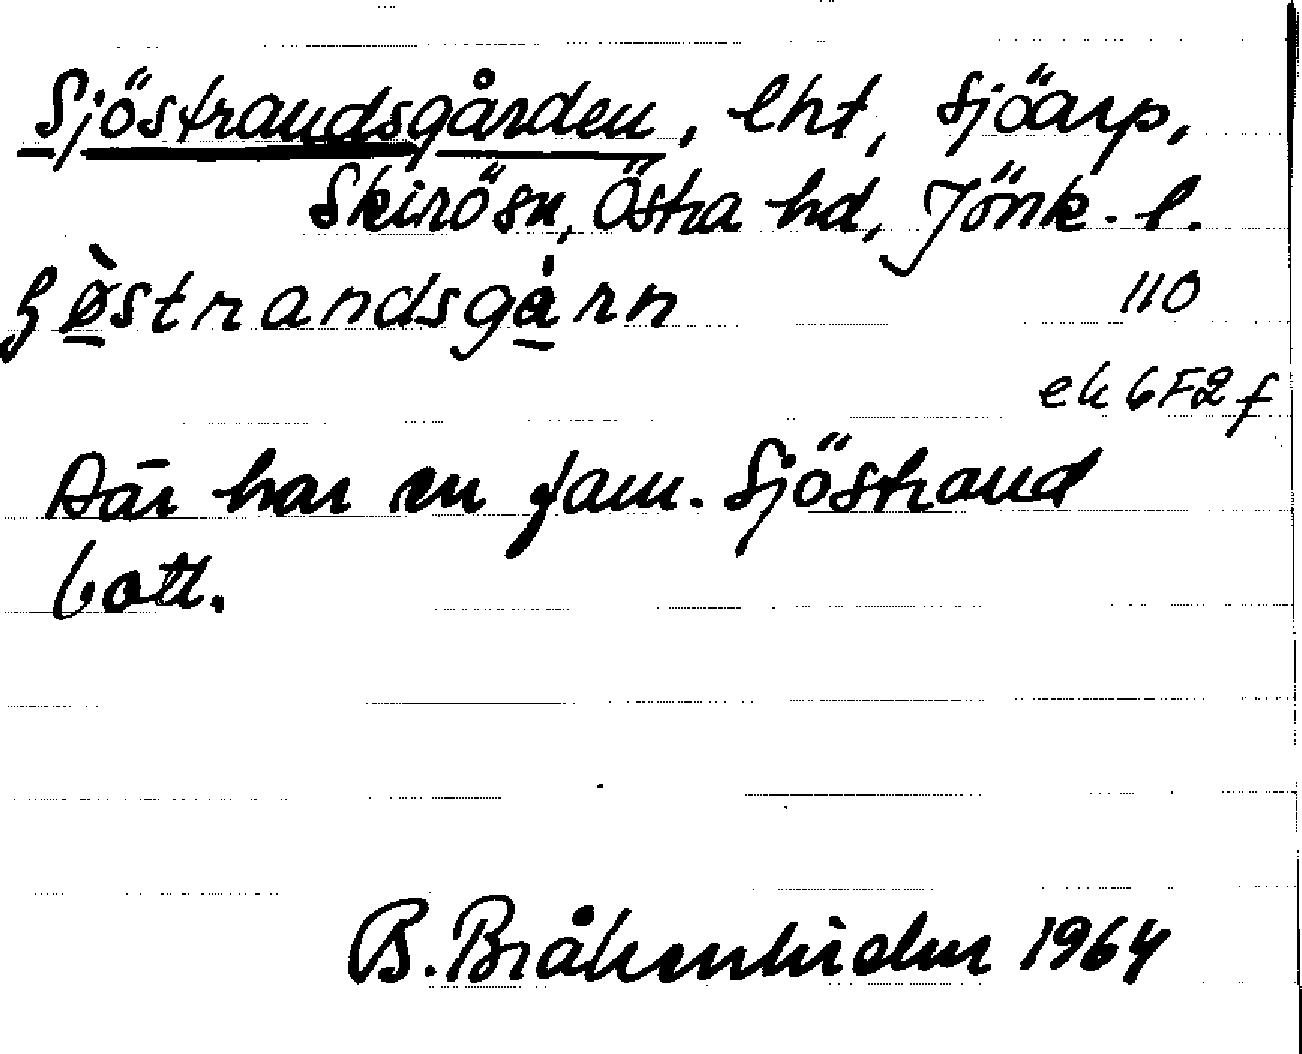 Sjöstrandsgården, lht, Sjöarp,
Skirö sn, Östra hd, Jönk. l.
ʃø̀strandsgạ̊rn 110
ek 6F2f
Där har en fam. Sjöstrand
bott.
B. Bråkenhielm 1964